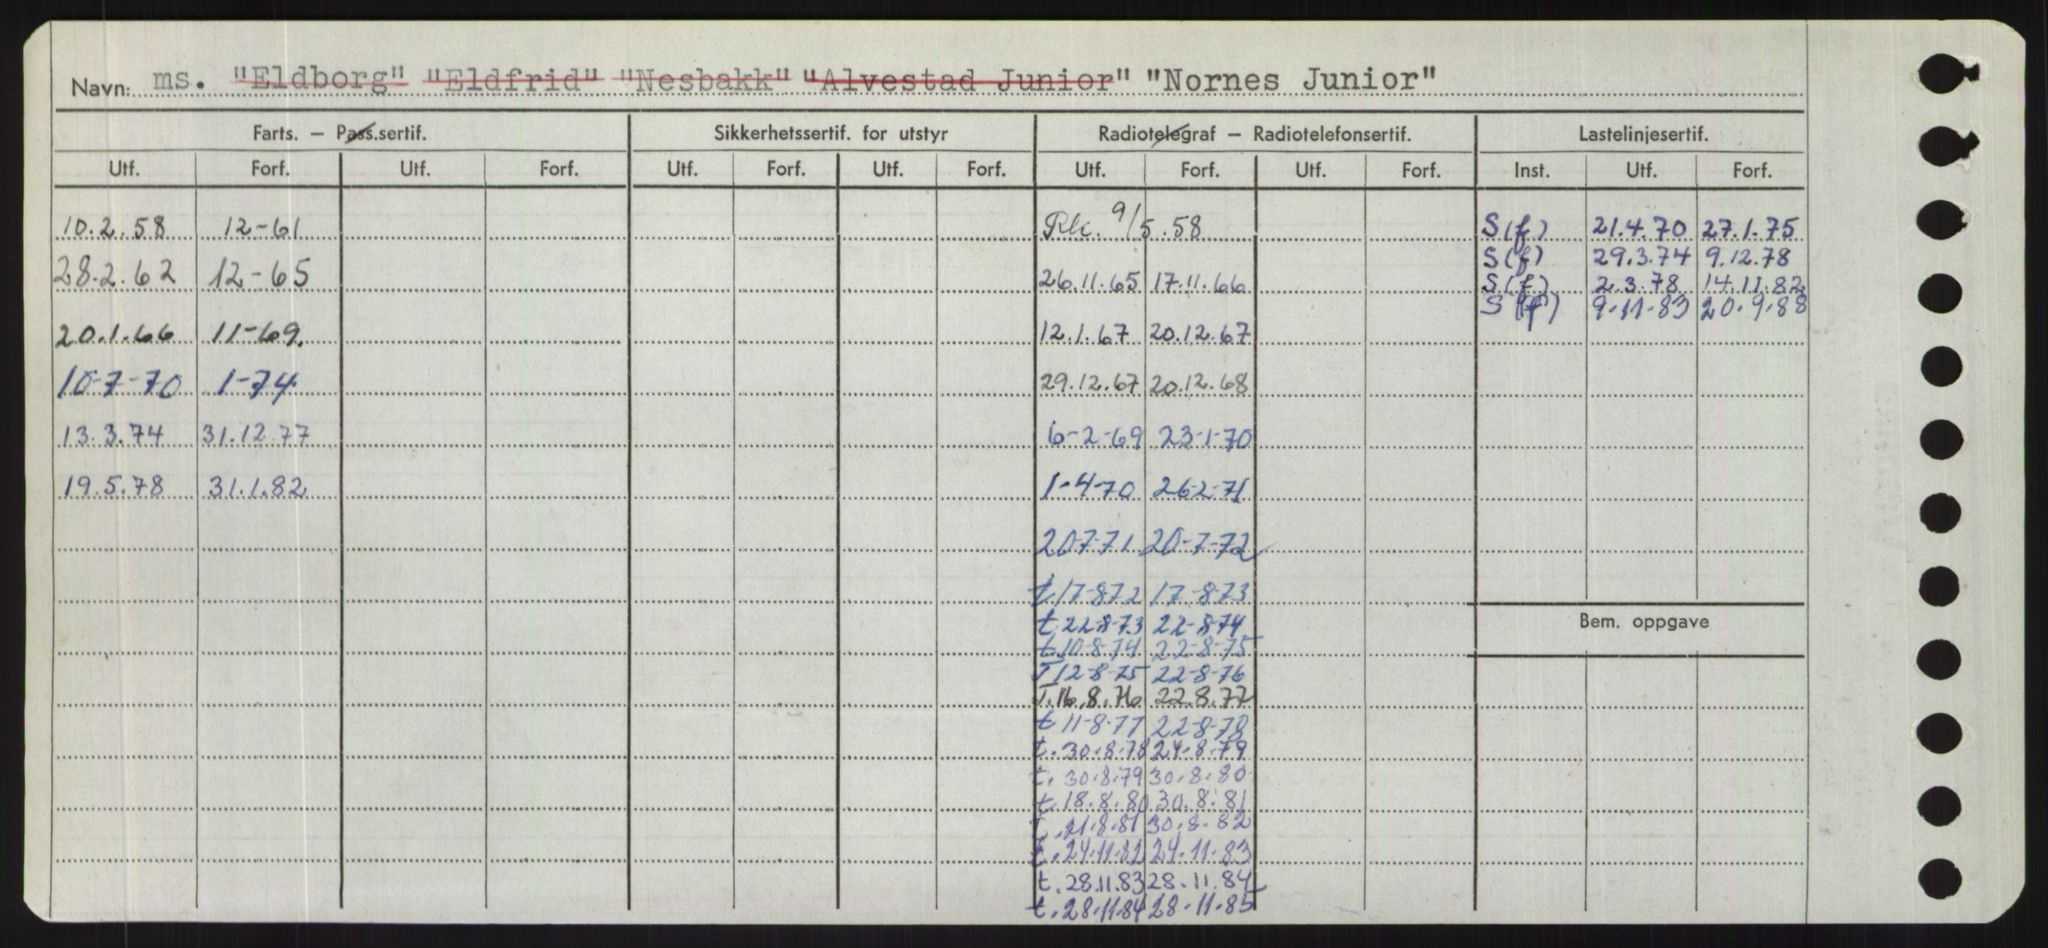 Navn: ms. "Eldborg" "Eldfrid" "Nesbakk" "Alvestad Junior" "Nornes Junior"
Farts. – Pass.sertif. Sikkerhetssertif. for utstyr Radiotelegraf – Radiotelefonsertif. Lastelinjesertif.
Utf. Forf. Utf. Forf. Utf. Forf. Utf. Forf. Utf. Forf. Utf. Forf. Inst. Utf. Forf.
10.2.58 12-61 9/5.58 S(f) 21.4.70 27.1.75
S(f) 29.3.74 9.12.78
28.2.62 12-65 26.11.65 17.11.66 S(f) 2.3.78 14.11.82
S(f) 9.11.83 20.9.88
20.1.66 11-69. 12.1.67 20.12.67
10-7-70 1-74 29.12.67 20.12.68
13.3.74 31.12.77 6-2-69 23-1-70
19.5.78 31.1.82 1-4-70 26-2-71
20-7-71 20-7-72
t.17-8-72 17-8-73
t.22-8-73 22-8-74
Bem. oppgave
t.10-8-74 22-8-75
T 12-8-75 22-8-76
T.16.8.76 22.8.77
t 11-8-77 22-8-78
t.30.8.78 24.8.79
t.30.8.79 30.8.80
t.18.8.80 30.8.81
t.21.8.81 30.8.82
t.24.11.82 24.11.83
t.28.11.83 28.11.84
t.28.11.84 28.11.85